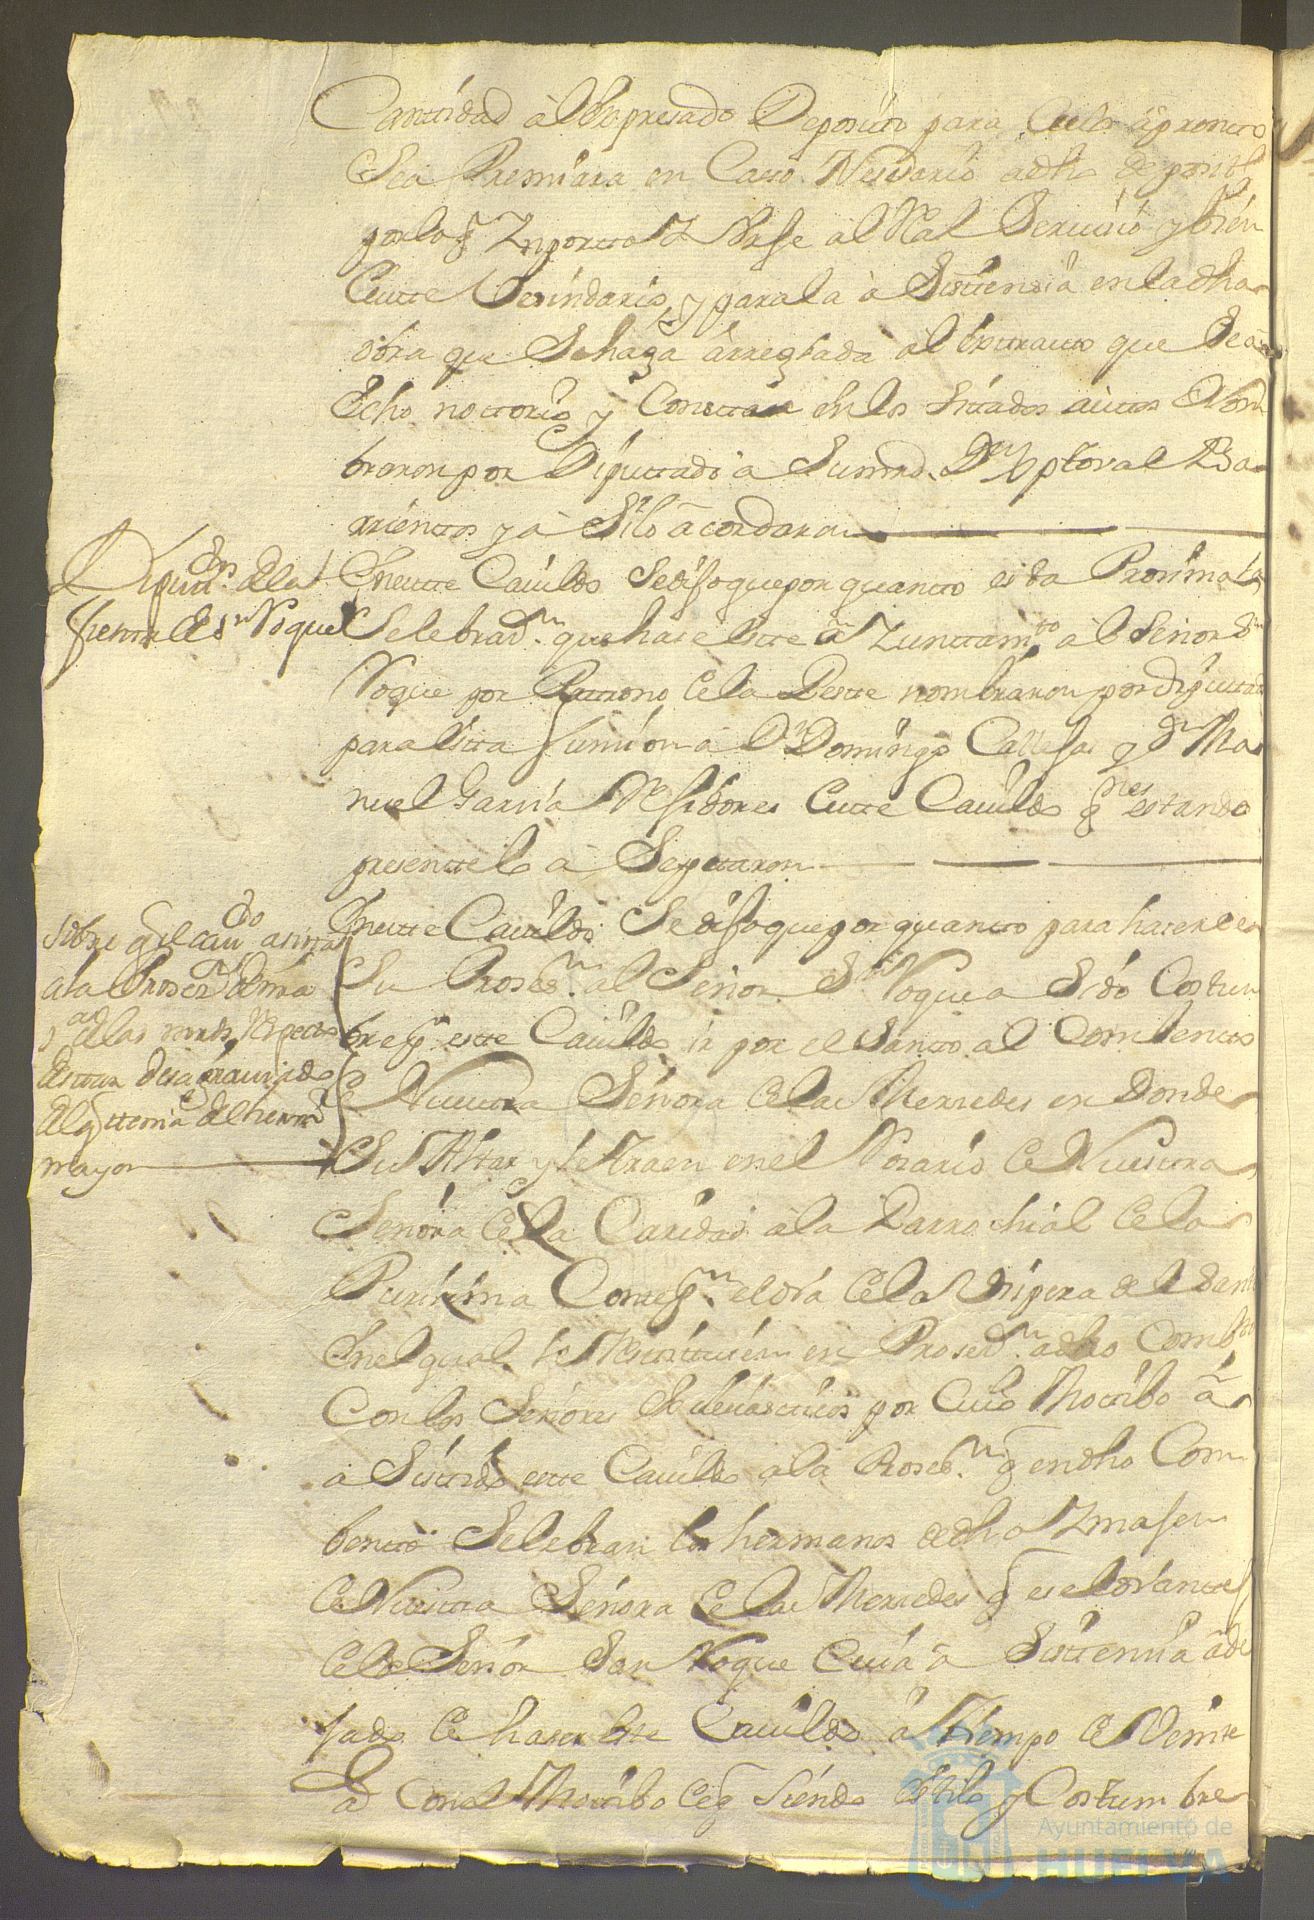 Cantidad âl Expresado Deposito para q̃ de âpronto
Sea Remitira en Caso Nesesario adho deposito
por lo q̃ Inportta al Real Seruiçio y bien
deste Besindario, y para la â Sistensia en la dha
obra que Se haga ârreglada âl extracto que Sea
Echo nottorio y Constta en los Sitados auttos Nom
braron por Diputtado a Sumrd. Dn Xptoval Ba
rrientos y â Si lo âcordaron
Diputtdos. de la
fiesta de Sn Roque
En este Cauildo Se dijo que por quanto esta Proxima la
Selebrazn. que hase este aiunttamto. al Señor Sn
Roque por Patrono de la Peste nombraron por diputtados
para esta funsion a Dn Domingo Callejas y Dn Ma
nuel Garsia Rejidores deste Cauildo qnes estando
presente lo â Septaron
Sobre q̃ el cauildo asista
a la Prosezn de ma
Sa de las mrds respecto
de estar desagrauiado
de lo q̃ ttenia del hermo
mayor
En este Cauildo Se dijo que por quanto para haserle en
Su Prosesn. al Señor Sn Roque a Sido Costum
bre q̃ este Cauildo ir por el Santo al Combento
de Nuestra Señora de las Mersedes en Donde
Su Altar y le traen en el Rosario de Nuestra
Señora de la Caridad a la Parrochial de la
Purisima Consepn. el dia de la Bispera del Santo
En el qual le Restituien en Prosesn. adho Combto
Con los Señores Eclesiasticos por Cuio Motibo â
a Sistido este Cauildo a la Prosesn. q̃ en dho Com
bento Selebran los hermanos de dha Imajen
de Nuestra Señora de las Mersedes q̃ es el dia antes
de el Señor San Roque Cuia â Sistensia a de
jado de haser este Cauildo â tiempo de Veinte
as Con el Motibo de q̃ Siendo estilo y Costumbre
Ayuntamiento de
HUELVA